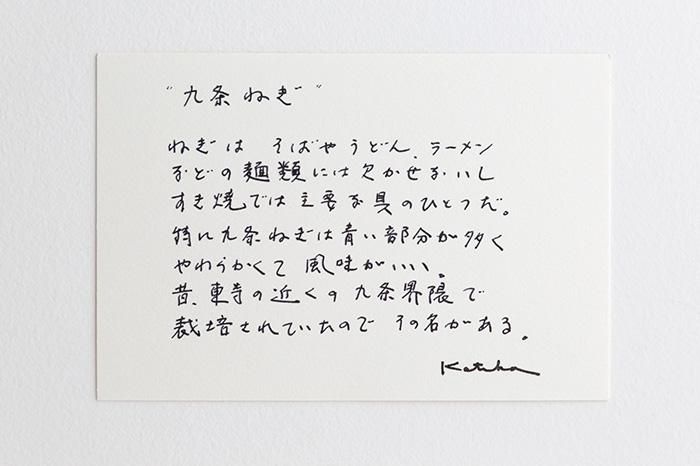 “九条ねぎ”
ねぎは そばやうどん、ラーメン
などの麺類には欠かせないし
すき焼では主要な具のひとつだ。
特に九条ねぎは青い部分が多く
やわらかくて 風味がいい。
昔、東寺の近くの九条界隈で
栽培されていたので その名がある。